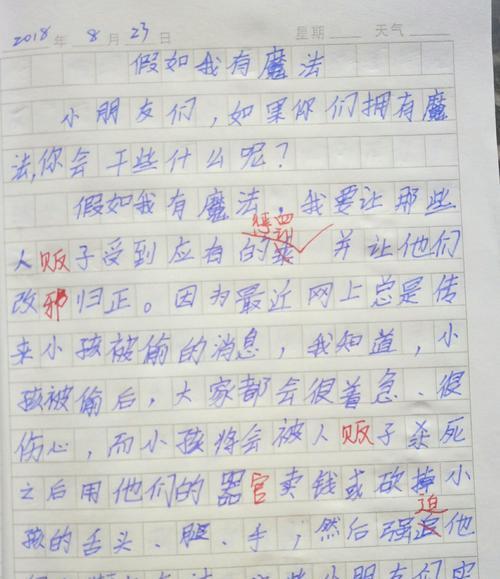 2018年 8月 23日 星期 天气
假如我有魔法
小朋友们,如果你们拥有魔
法,你会干些什么呢?
假如我有魔法,我要让那些
惩罚
人贩子受到应有的 并让他们
改邪归正。因为最近网上总是传
来小孩被偷的消息,我知道,小
孩被偷后,大家都会很着急、很
伤心,而小孩将会被人贩子杀死
之后用他们的器官卖钱或砍掉小
迫
孩的舌头、腿、手,然后强 他
小朋友们